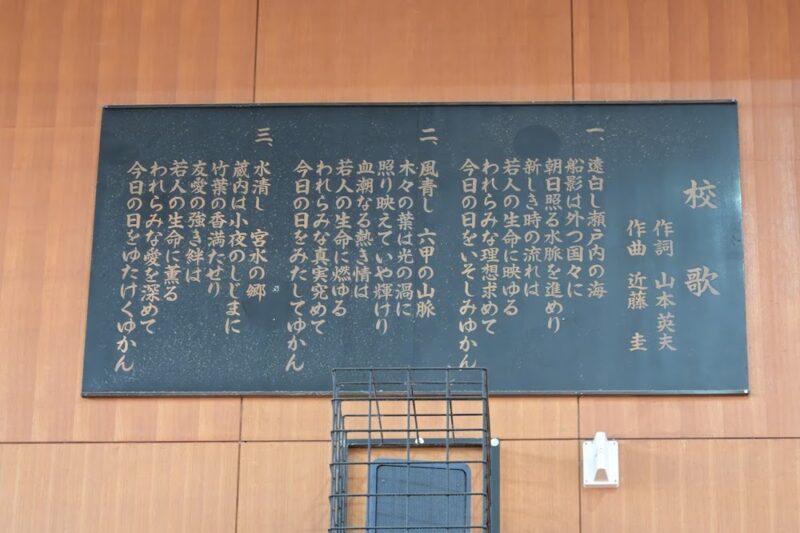 校歌
作詞 山本英夫
作曲 近藤 圭
一、遠白し瀬戸内の海
船影は外つ国々に
朝日照る水脈を進めり
新しき時の流れは
若人の生命に映ゆる
われらみな理想求めて
今日の日をいそしみゆかん
二、風青し 六甲の山脈
木々の葉は光の渦に
照り映えていや輝けり
血潮なる熱き情は
若人の生命に燃ゆる
われらみな真実究めて
今日の日をみたしてゆかん
三、水清し 宮水の郷
蔵内は小夜のしじまに
竹葉の香満たせり
友愛の強き絆は
若人の生命に薫る
われらみな愛を深めて
今日の日をゆたけくゆかん